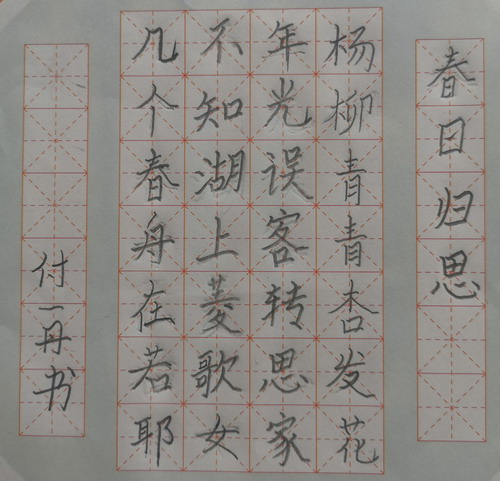 春日归思
杨柳青青杏发花
年光误客转思家
不知湖上菱歌女
几个春舟在若耶
付一丹书